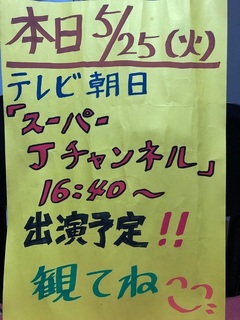 本日5/25(火)
テレビ朝日
「スーパー
Jチャンネル」
16:40～
出演予定!!
観てね